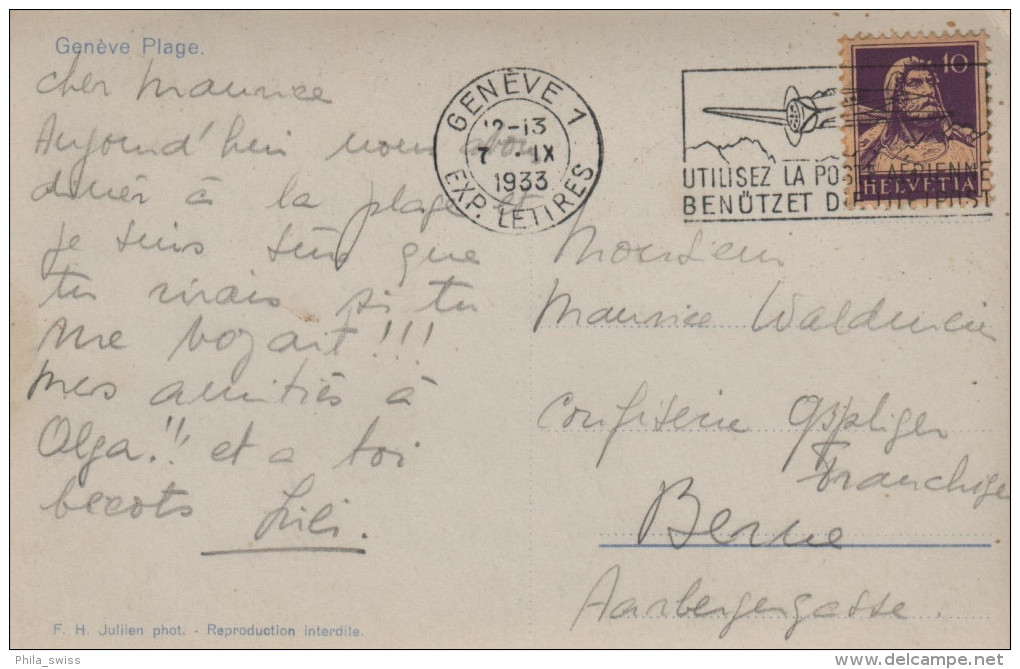 Genève Plage.
cher Maurice
Aujourd'hui nous avons
diner à la plage et
je suis sûr que
tu rirais si tu
me voyait!!!
mes amitiés à
Olga!! et a toi
becots Lili.
GENÈVE 1
12-13
7 . IX
1933
EXP. LETTRES
UTILISEZ LA POSTE AÉRIENNE
BENÜTZET DIE LUFTPOST
10
HELVETIA
Monsieur
Maurice
Confiserie
Berne
Aarbergergasse.
F. H. Jullien phot. - Reproduction interdite.
Phila_swiss
delcampe.net